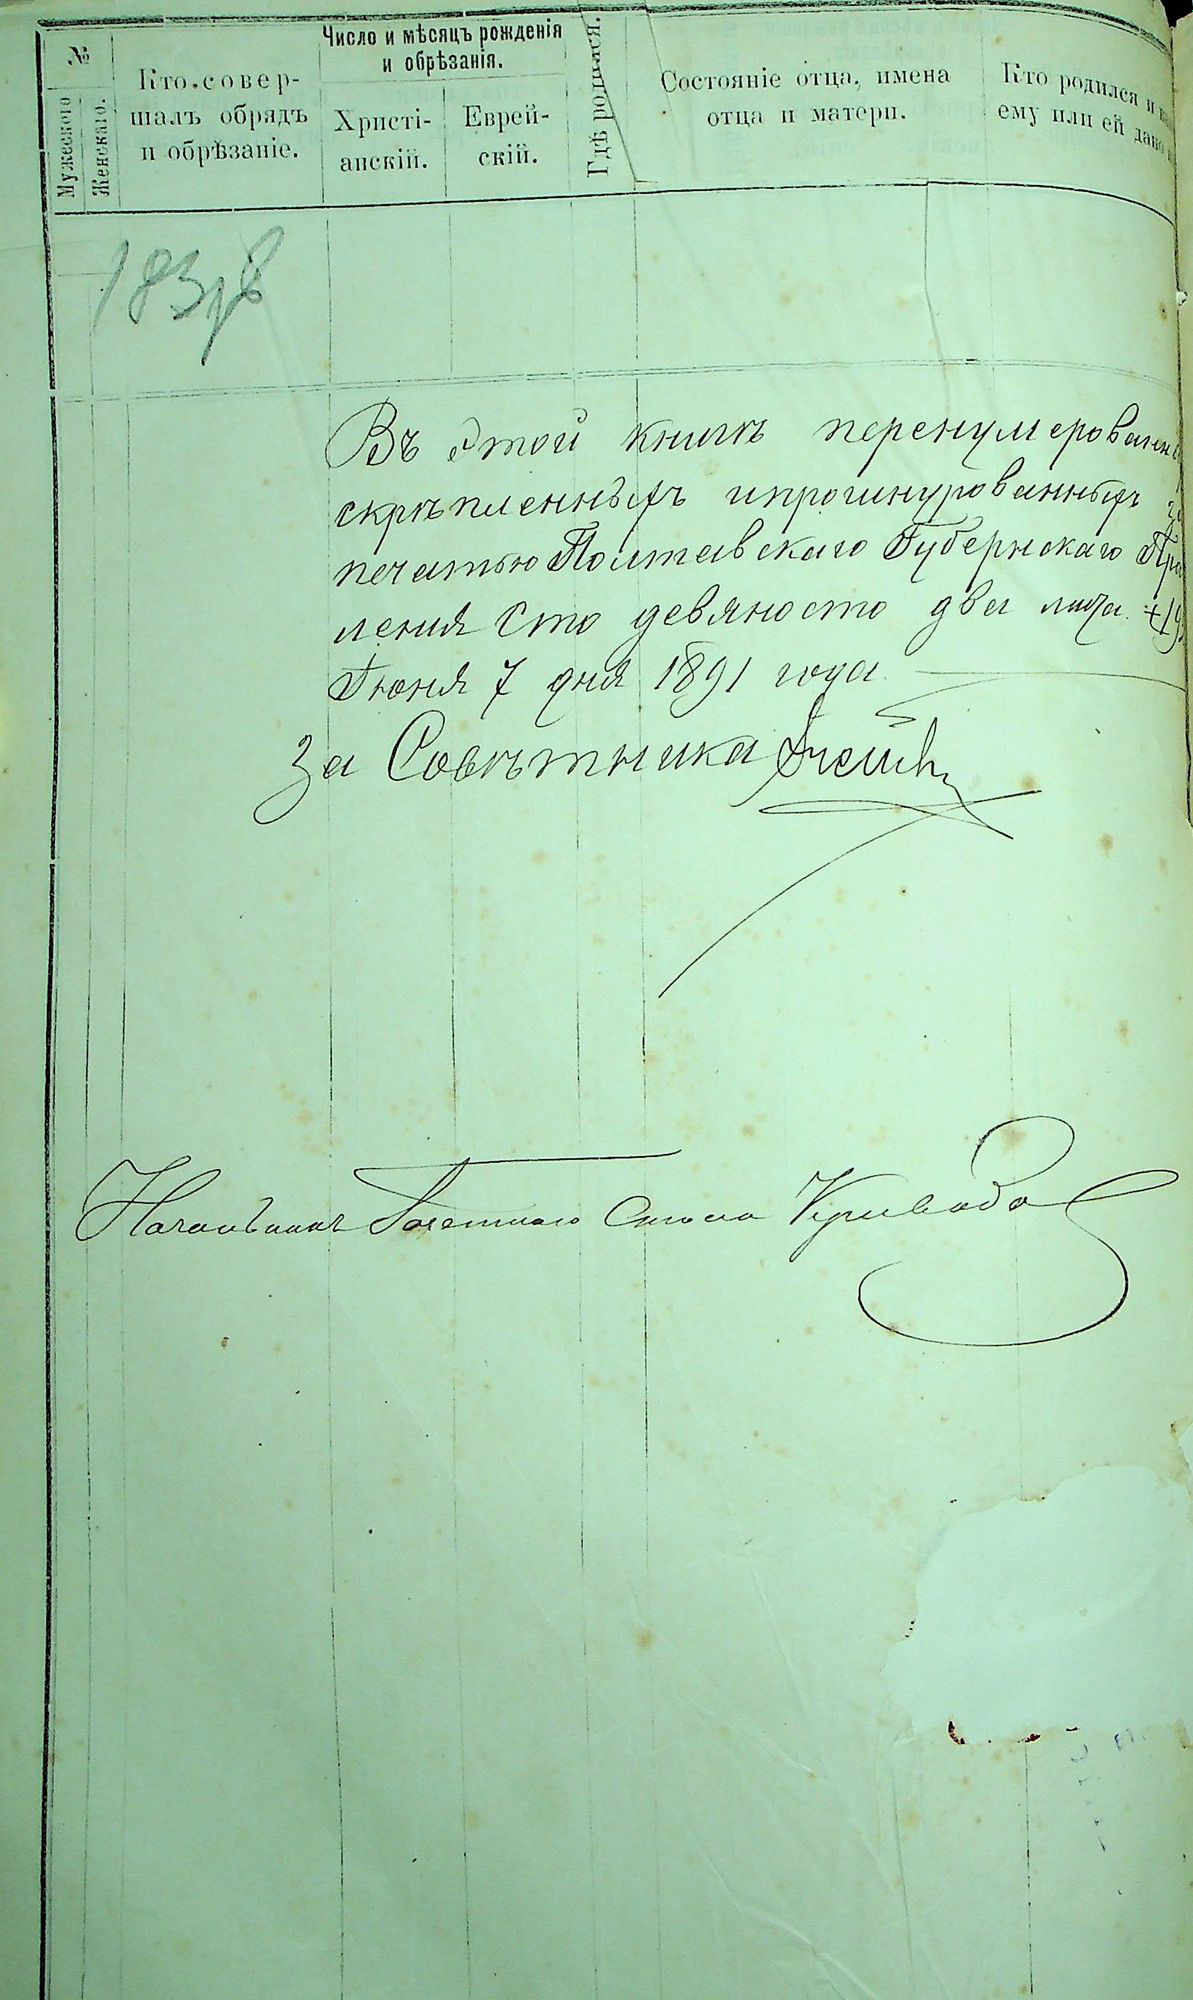 №
Мужескаго
Женскаго.
Кто совер-
шалъ обрядъ
и обрѣзаніе.
Число и мѣсяцъ рожденія
и обрѣзанія.
Христі-
анскій.
Еврей-
скій.
Гдѣ родился.
Состояніе отца, имена
отца и матери.
Кто родился и
ему или ей дано
183
Въ этой книгѣ перенумерованн
скрѣпленныхъ и прошнурованныхъ за
печатью Полтавскаго Губернскаго Пра
ленія сто девяносто два листа
Іюня 7 дня 1891 года.
За Совѣтника
Начальникъ Стола